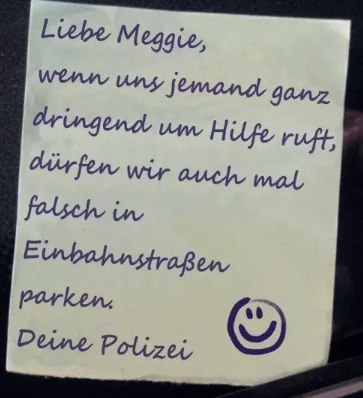 Liebe Meggie,
wenn uns jemand ganz
dringend um Hilfe ruft,
dürfen wir auch mal
falsch in
Einbahnstraßen
parken.
Deine Polizei